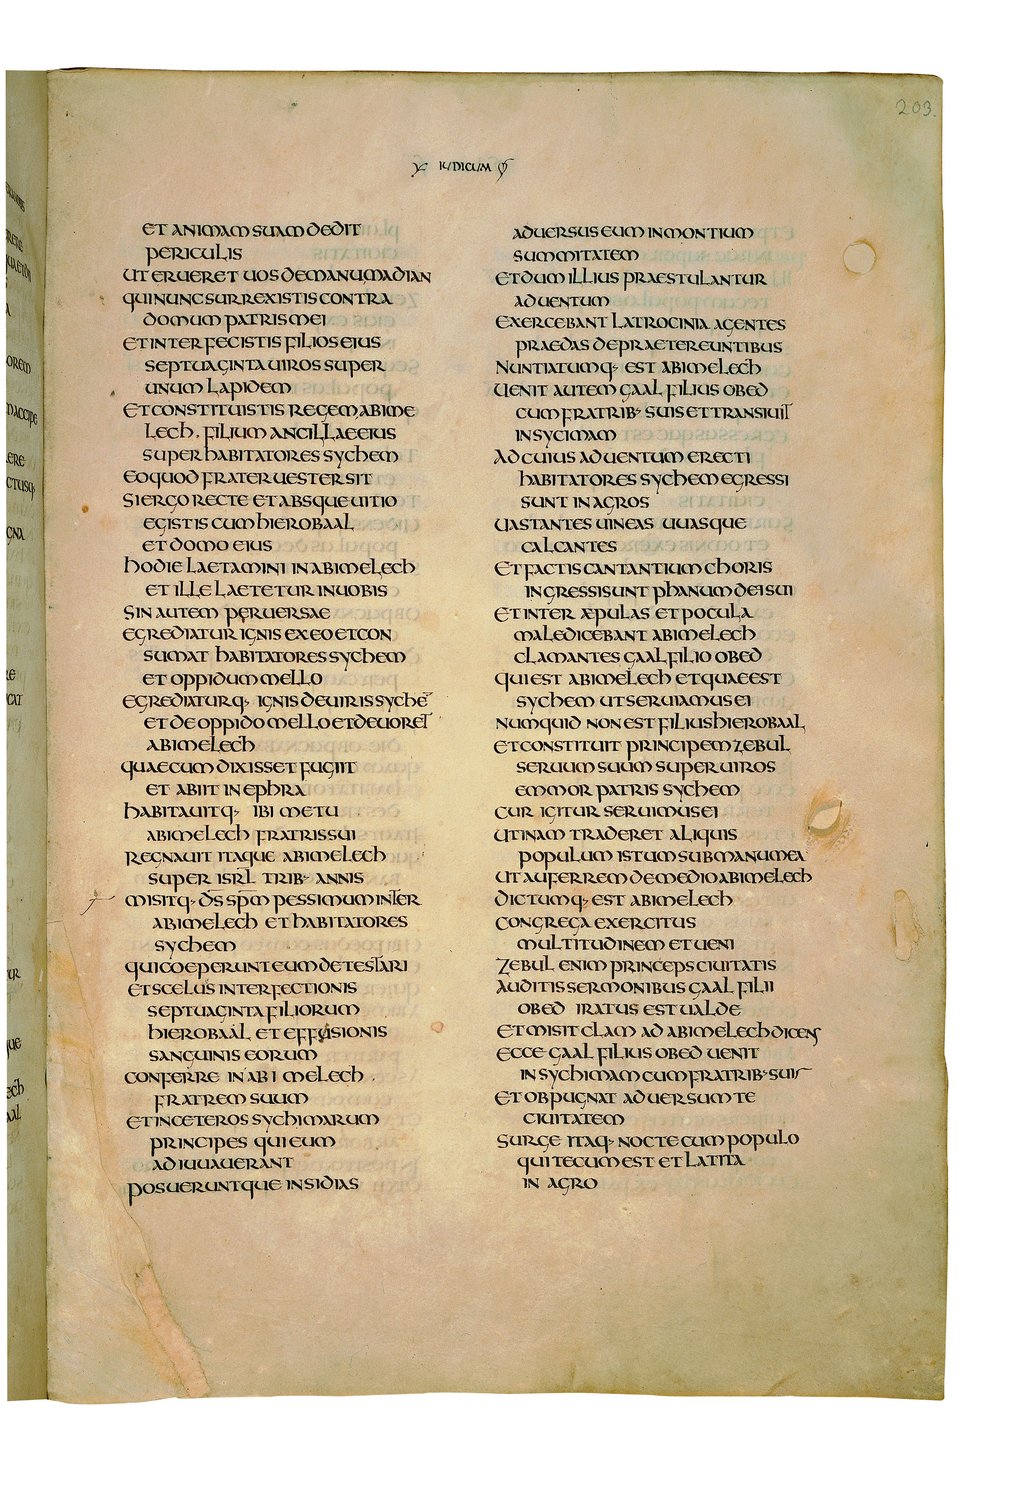 203.
IUDICUM
ET ANIMAM SUAM DEDIT
PERICULIS
UT ERUERET UOS DE MANU MADIAN
QUI NUNC SURREXISTIS CONTRA
DOMUM PATRIS MEI
ET INTERFECISTIS FILIOS EIUS
SEPTUAGINTA UIROS SUPER
UNUM LAPIDEM
ET CONSTITUISTIS REGEM ABIME
LECH . FILIUM ANCILLAE EIUS
SUPER HABITATORES SYCHEM
EO QUOD FRATER UESTER SIT
SI ERGO RECTE ET ABSQUE UITIO
EGISTIS CUM HIEROBAAL
ET DOMO EIUS
HODIE LAETAMINI IN ABIMELECH
ET ILLE LAETETUR IN UOBIS
SIN AUTEM PERUERSAE
EGREDIATUR IGNIS EX EO ET CON
SUMAT HABITATORES SYCHEM
ET OPPIDUM MELLO
EGREDIATURQ· IGNIS DE UIRIS SYCHE¯
ET DE OPPIDO MELLO ET DEUORET
ABIMELECH
QUAE CUM DIXISSET FUGIIT
ET ABIIT IN EPHRA
HABITAUITQ· IBI METU
ABIMELECH FRATRIS SUI
REGNAUIT ITAQUE ABIMELECH
SUPER ISRL̅ TRIB· ANNIS
MISITQ· DS̅ SPM̅ PESSIMUM INTER
ABIMELECH ET HABITATORES
SYCHEM
QUI COEPERUNT EUM DETESTARI
ET SCELUS INTERFECTIONIS
SEPTUAGINTA FILIORUM
HIEROBAAL ET EFFUSIONIS
SANGUINIS EORUM
CONFERRE IN ABIMELECH .
FRATREM SUUM
ET IN CETEROS SYCHIMARUM
PRINCIPES QUI EUM
ADIUUAUERANT
POSUERUNTQUE INSIDIAS
ADUERSUS EUM IN MONTIUM
SUMMITATEM
ET DUM ILLIUS PRAESTULANTUR
ADUENTUM
EXERCEBANT LATROCINIA AGENTES
PRAEDAS DE PRAETEREUNTIBUS
NUNTIATUMQ· EST ABIMELECH
UENIT AUTEM GAAL FILIUS OBED
CUM FRATRIB· SUIS ET TRANSIUIT
IN SYCIMAM
AD CUIUS ADUENTUM ERECTI
HABITATORES SYCHEM EGRESSI
SUNT IN AGROS
UASTANTES UINEAS UUASQUE
CALCANTES
ET FACTIS CANTANTIUM CHORIS
INGRESSI SUNT PHANUM DEI SUI
ET INTER ÆPULAS ET POCULA
MALEDICEBANT ABIMELECH
CLAMANTES GAAL FILIO OBED
QUI EST ABIMELECH ET QUAE EST
SYCHEM UT SERUIAMUS EI
NUMQUID NON EST FILIUS HIEROBAAL
ET CONSTITUIT PRINCIPEM ZEBUL
SERUUM SUUM SUPER UIROS
EMMOR PATRIS SYCHEM
CUR IGITUR SERUIMUS EI
UTINAM TRADERET ALIQUIS
POPULUM ISTUM SUB MANU MEA
UT AUFERREM DE MEDIO ABIMELECH
DICTUMQ· EST ABIMELECH
CONGREGA EXERCITUS
MULTITUDINEM ET UENI
ZEBUL ENIM PRINCEPS CIUITATIS
AUDITIS SERMONIBUS GAAL FILII
OBED IRATUS EST UALDE
ET MISIT CLAM AD ABIMELECH DICENS
ECCE GAAL FILIUS OBED UENIT
IN SYCHIMAM CUM FRATRIB· SUIS
ET OBPUGNAT ADUERSUM TE
CIUITATEM
SURGE ITAQ· NOCTE CUM POPULO
QUI TECUM EST ET LATITA
IN AGRO